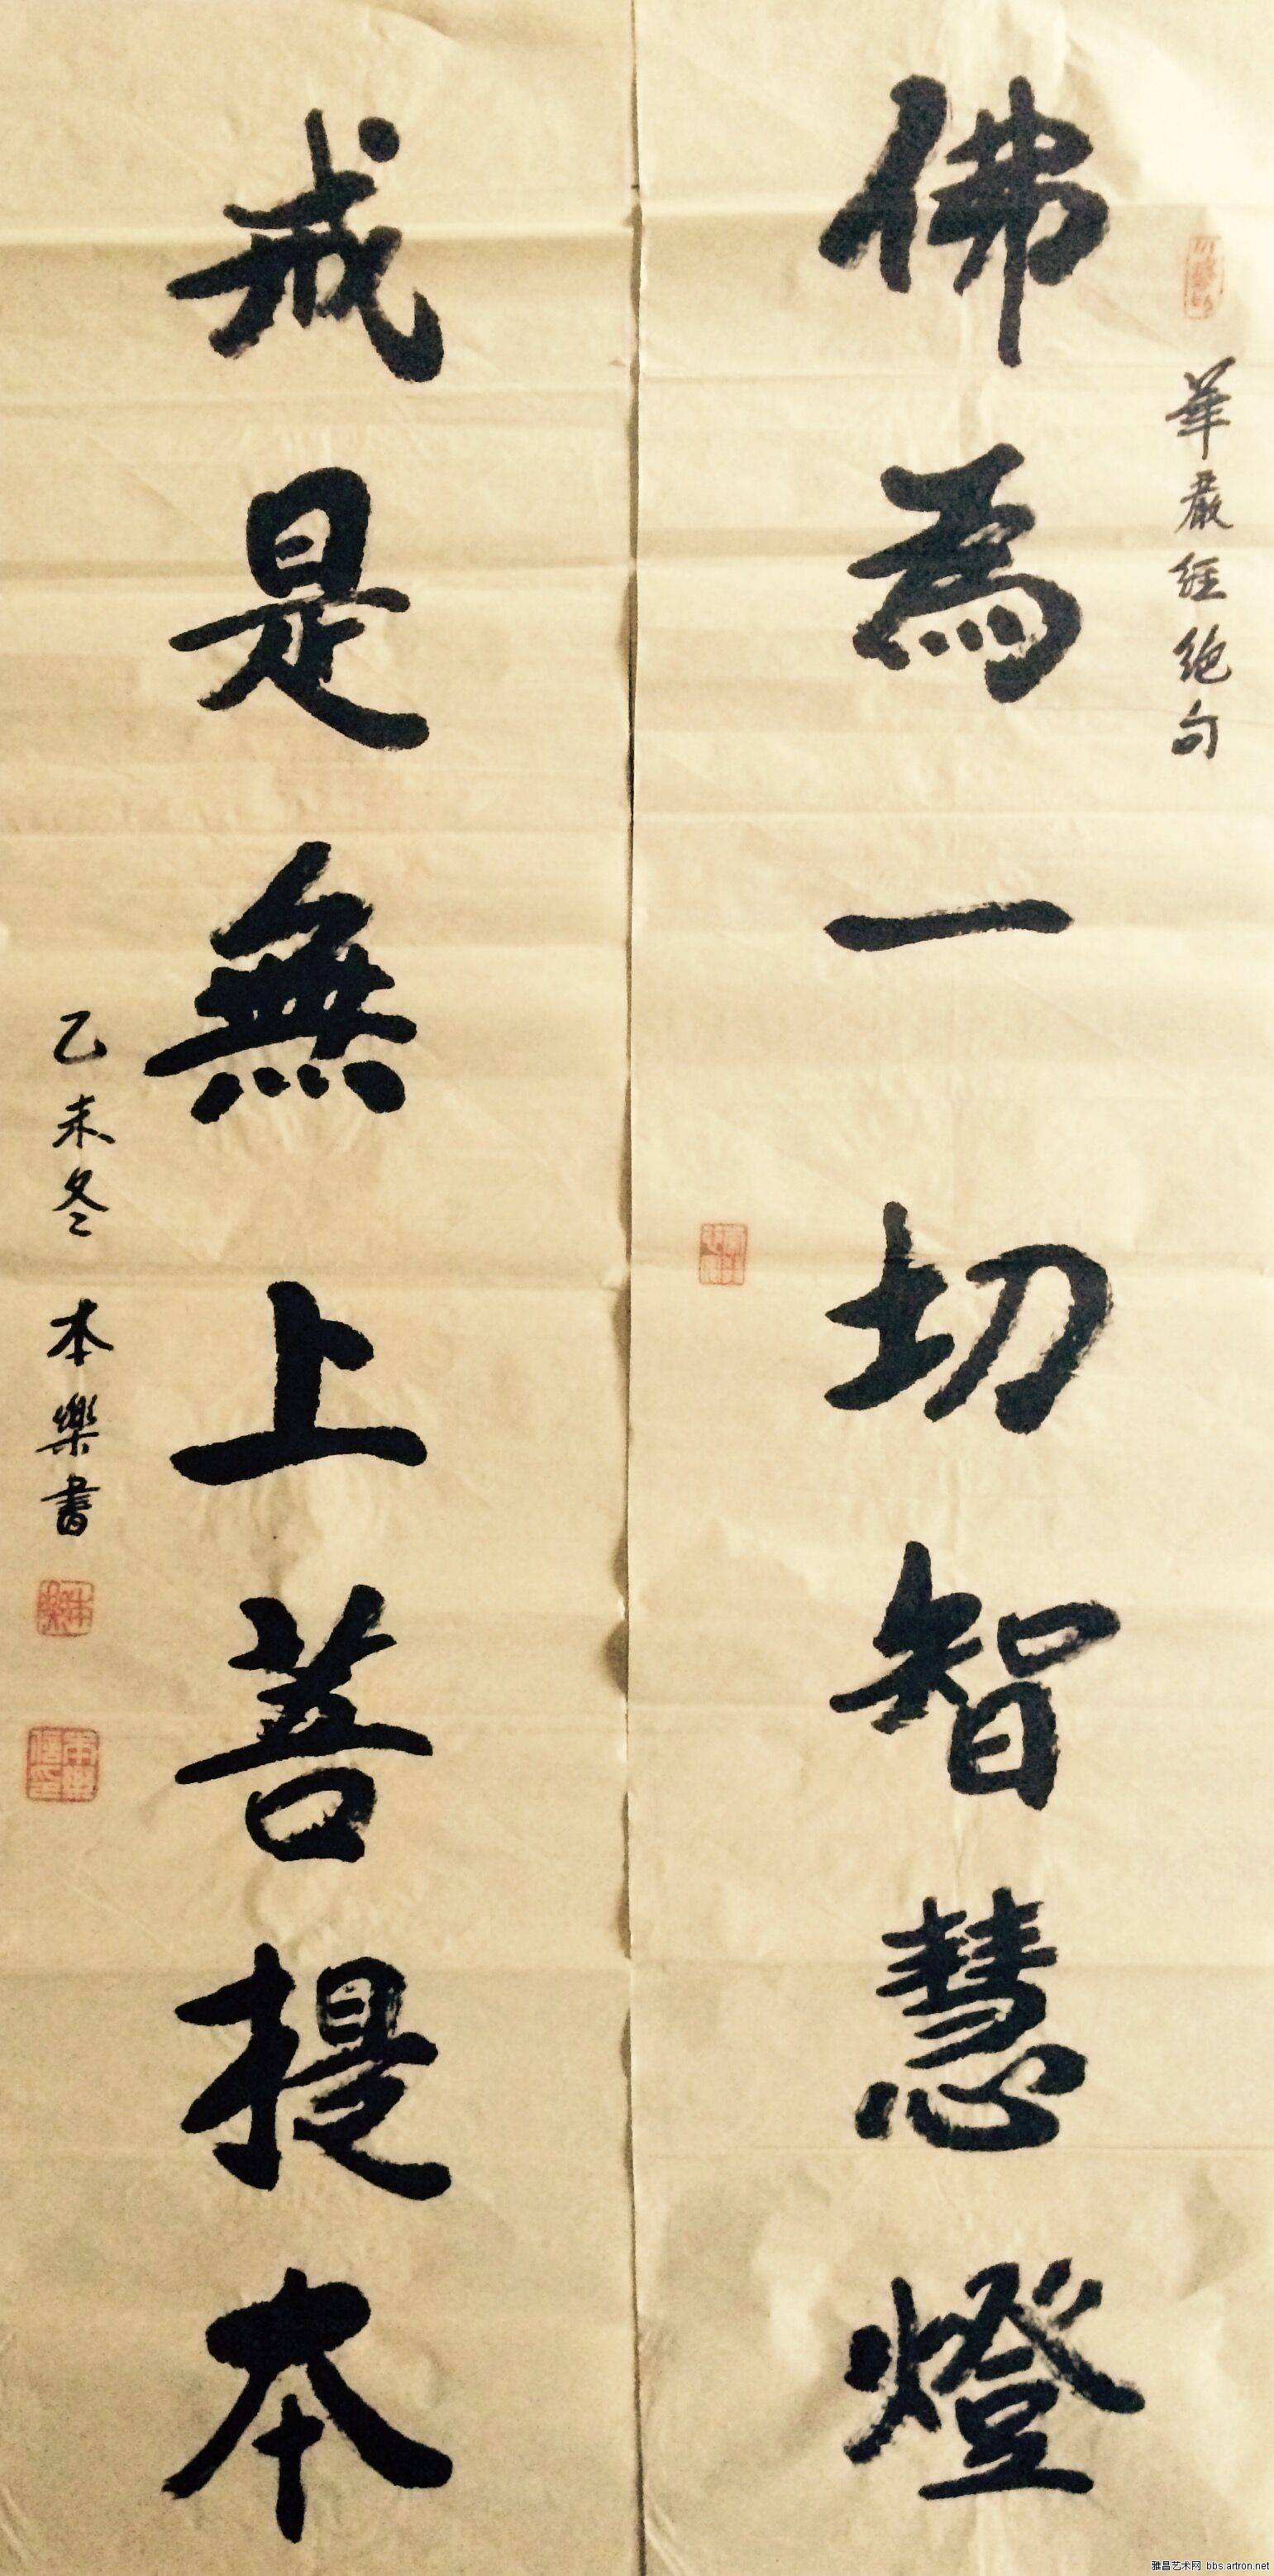 華嚴經絕句
佛為一切智慧燈
戒是無上菩提本
乙未冬 本樂書
本樂
雅昌艺术网 bbs.artron.net